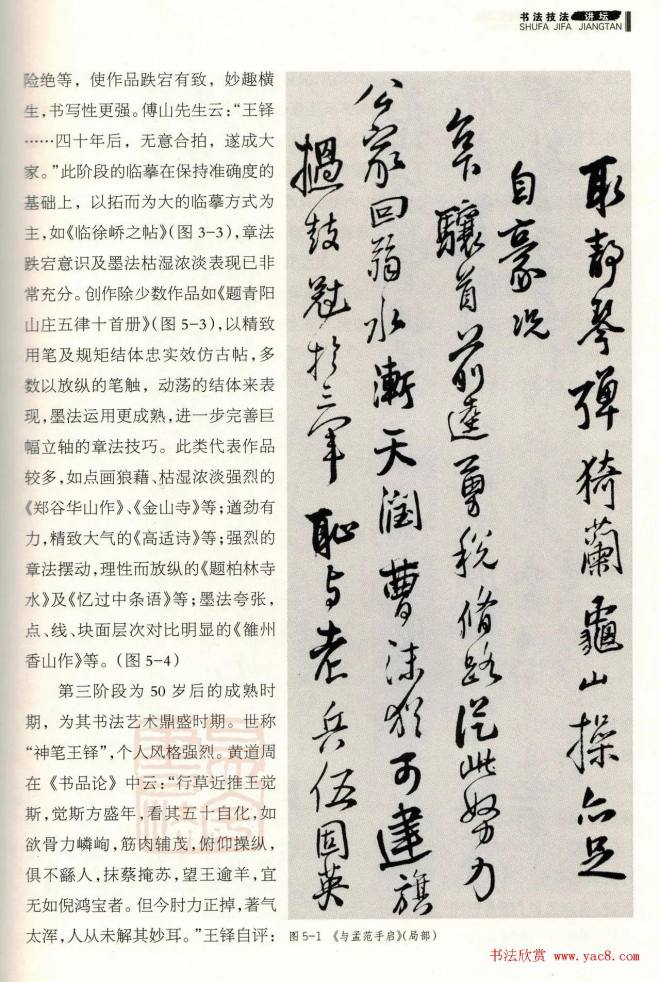 书法技法 讲坛
SHUFA JIFA JIANGTAN
险绝等，使作品跌宕有致，妙趣横
生，书写性更强。傅山先生云：“王铎
……四十年后，无意合拍，遂成大
家。”此阶段的临摹在保持准确度的
基础上，以拓而为大的临摹方式为
主，如《临徐峤之帖》（图 3-3），章法
跌宕意识及墨法枯湿浓淡表现已非
常充分。创作除少数作品如《题青阳
山庄五律十首册》（图 5-3），以精致
用笔及规矩结体忠实效仿古帖，多
数以放纵的笔触，动荡的结体来表
现，墨法运用更成熟，进一步完善巨
幅立轴的章法技巧。此类代表作品
较多，如点画狼藉、枯湿浓淡强烈的
《郑谷华山作》、《金山寺》等；遒劲有
力，精致大气的《高适诗》等；强烈的
章法摆动，理性而放纵的《题柏林寺
水》及《忆过中条语》等；墨法夸张，
点、线、块面层次对比明显的《雒州
香山作》等。（图 5-4）
第三阶段为 50 岁后的成熟时
期，为其书法艺术鼎盛时期。世称
“神笔王铎”，个人风格强烈。黄道周
在《书品论》中云：“行草近推王觉
斯，觉斯方盛年，看其五十自化，如
欲骨力嶙峋，筋肉辅茂，俯仰操纵，
俱不繇人，抹蔡掩苏，望王逾羊，宜
无如倪鸿宝者。但今肘力正掉，著气
太浑，人从未解其妙耳。”王铎自评：
静琴弹猗蘭龜山操亦足
自豪况
驤首前達勇税脩路從此努力
公家回翁水漸天潤曹沫猶可建旗
撾鼓冠於三軍恥与老兵伍固英
图 5-1 《与孟范手启》（局部）
书法欣赏 www.yac8.com